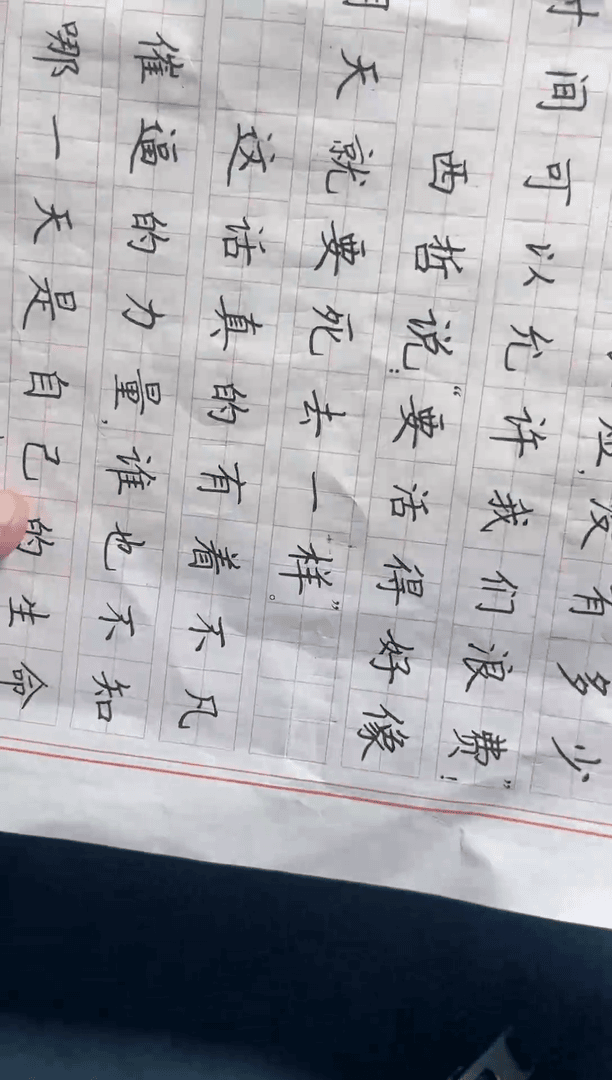 短,没有多少
时间可以允许我们浪费!”
西哲说:“要活得好像
明天就要死去一样”。
这话真的有着不凡
催逼的力量,谁也不知
哪一天是自己的生命